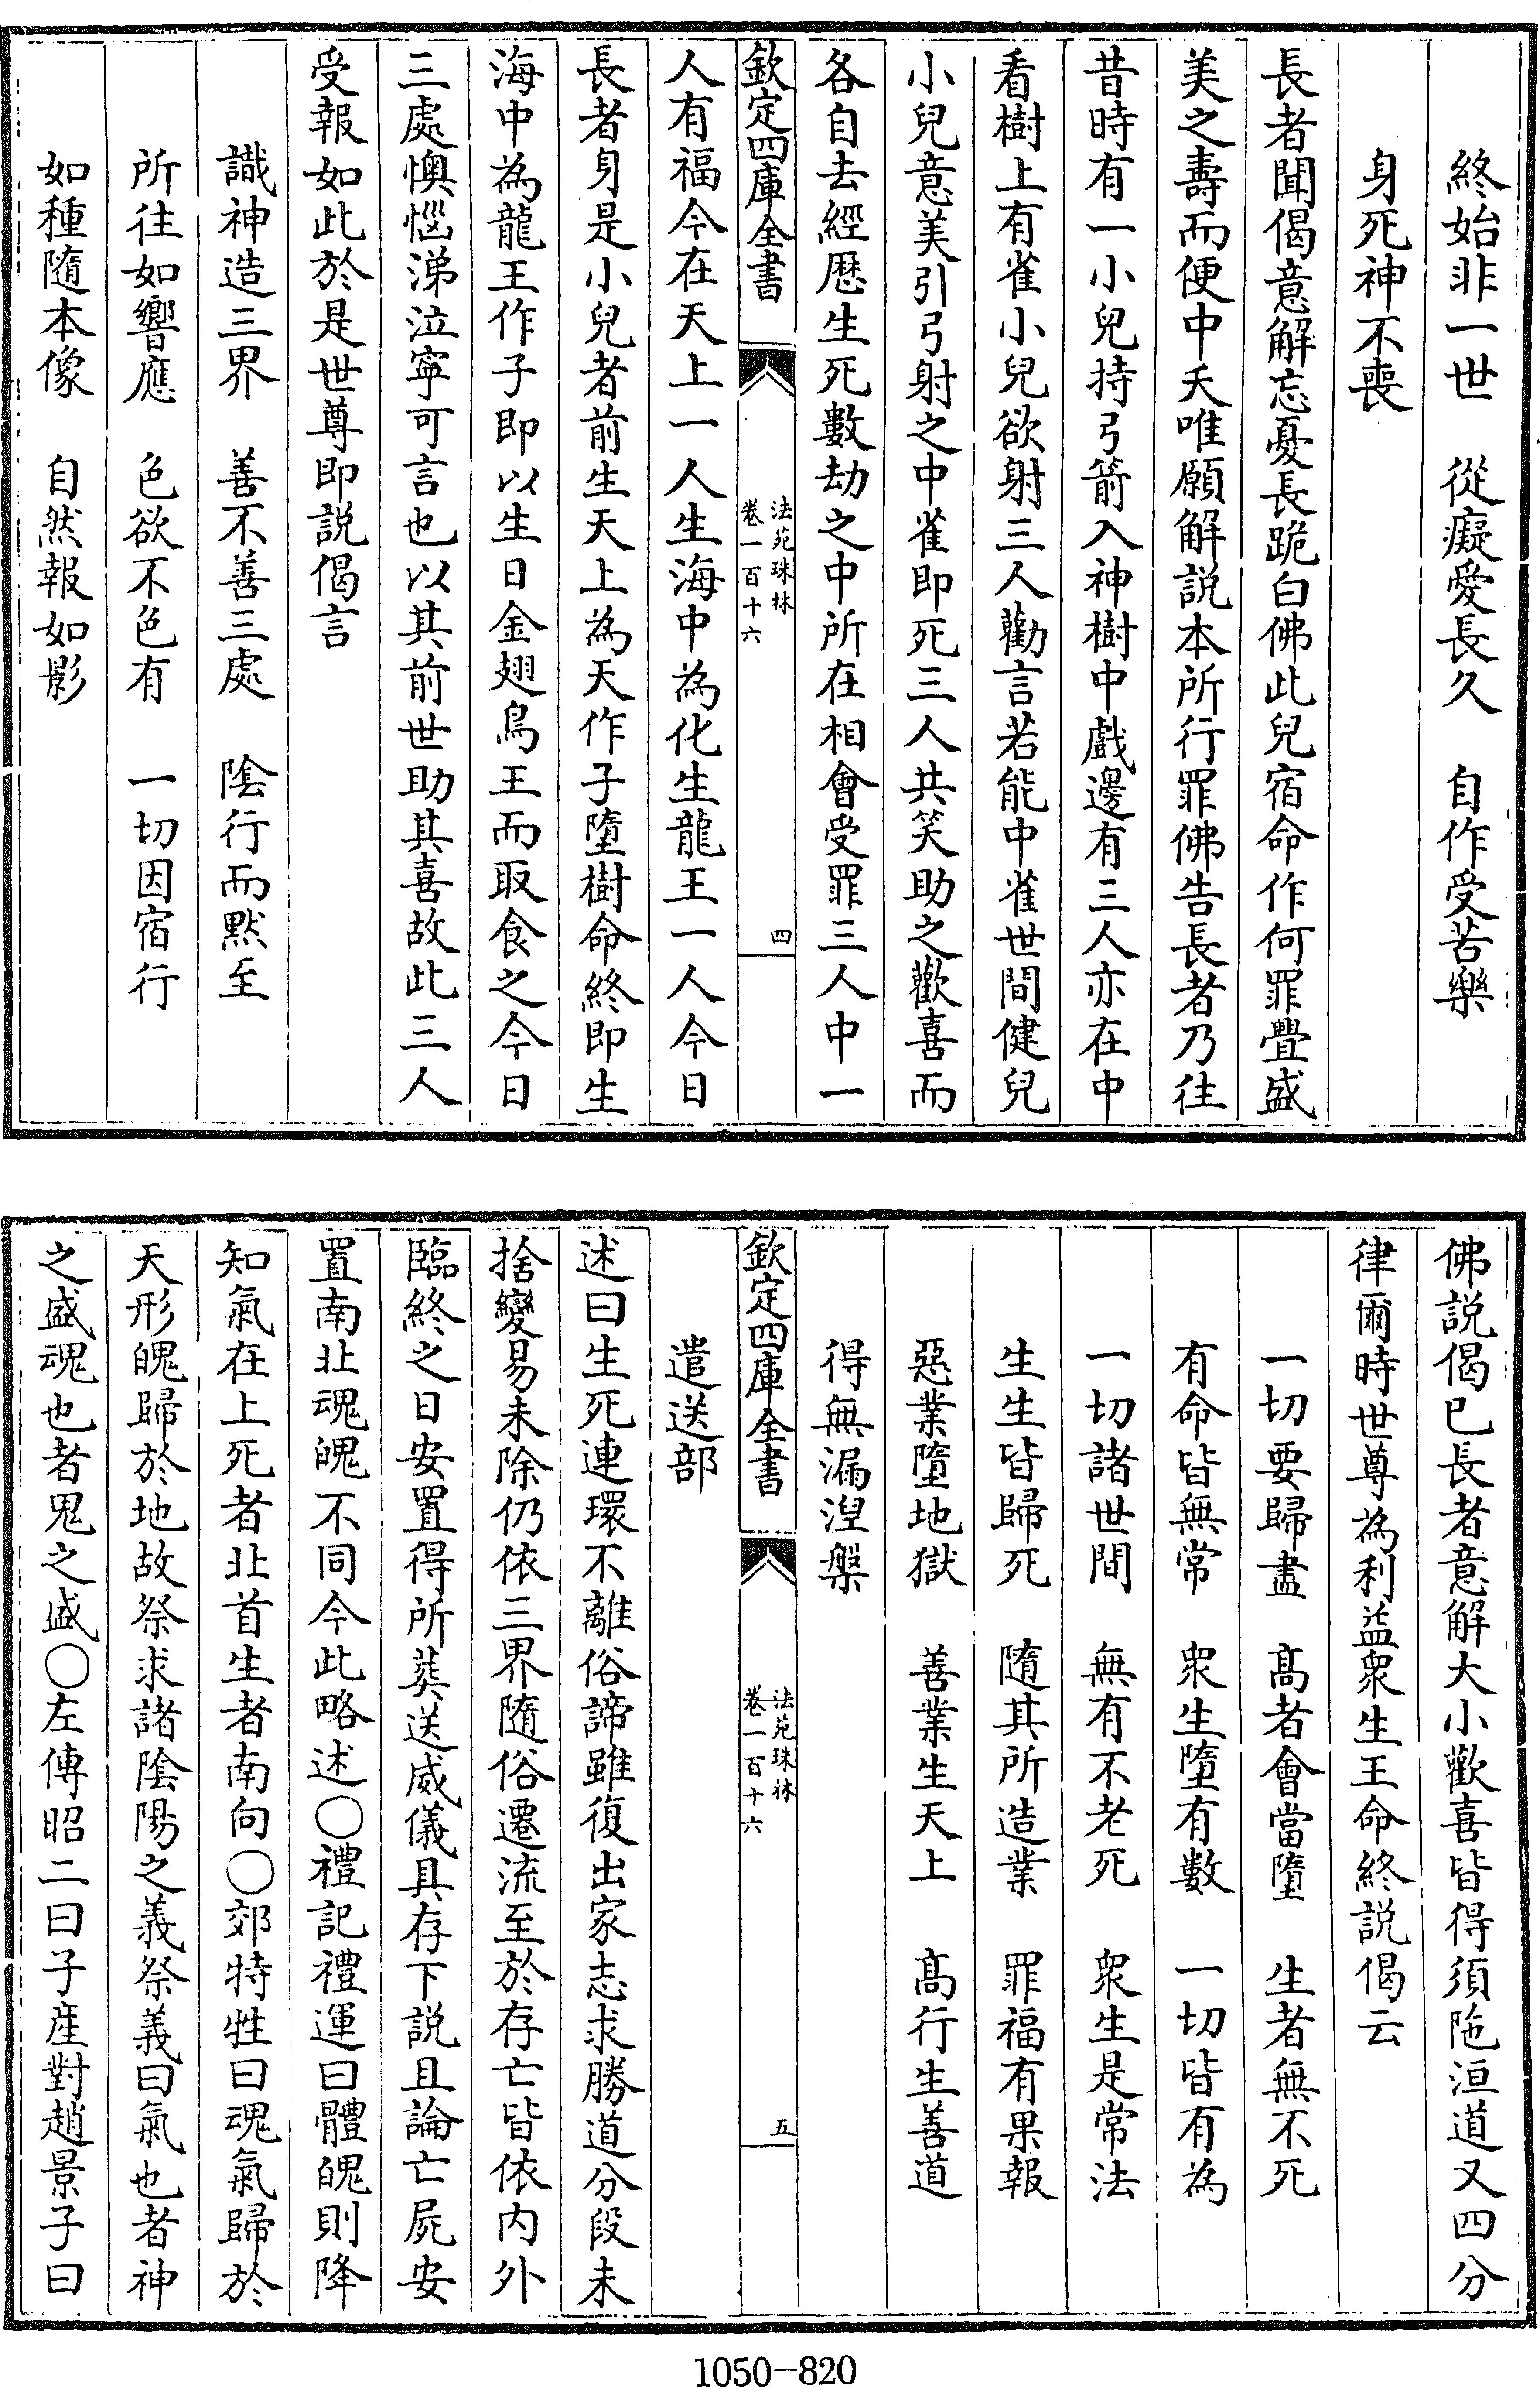 終始非一世　從癡愛長久　自作受苦樂
身死神不喪
長者聞偈意解忘憂長跪白佛此兒宿命作何罪釁盛
美之壽而便中夭唯願解説本所行罪佛告長者乃往
昔時有一小兒持弓箭入神樹中戲邊有三人亦在中
看樹上有雀小兒欲射三人勸言若能中雀世間健兒
小兒意美引弓射之中雀即死三人共笑助之歡喜而
各自去經歴生死數劫之中所在相會受罪三人中一
欽定四庫全書
法苑珠林
卷一百十六
四
人有福今在天上一人生海中為化生龍王一人今日
長者身是小兒者前生天上為天作子墮樹命終即生
海中為龍王作子即以生日金翅鳥王而取食之今日
三處懊惱涕泣寧可言也以其前世助其喜故此三人
受報如此於是世尊即説偈言
識神造三界　善不善三處　陰行而黙至
所往如響應　色欲不色有　一切因宿行
如種隨本像　自然報如影
佛説偈已長者意解大小歡喜皆得須陁洹道又四分
律爾時世尊為利益衆生王命終説偈云
一切要歸盡　髙者會當墮　生者無不死
有命皆無常　衆生墮有數　一切皆有為
一切諸世間　無有不老死　衆生是常法
生生皆歸死　隨其所造業　罪福有果報
惡業墮地獄　善業生天上　髙行生善道
得無漏涅槃
欽定四庫全書
法苑珠林
卷一百十六
五
遣送部
述曰生死連環不離俗諦雖復出家志求勝道分段未
捨變易未除仍依三界隨俗遷流至於存亡皆依内外
臨終之日安置得所葬送威儀具存下説且論亡屍安
置南北魂魄不同今此略述○禮記禮運曰體魄則降
知氣在上死者北首生者南向○郊特牲曰魂氣歸於
天形魄歸於地故祭求諸陰陽之義祭義曰氣也者神
之盛魂也者鬼之盛○左傳昭二曰子産對趙景子曰
1050-820